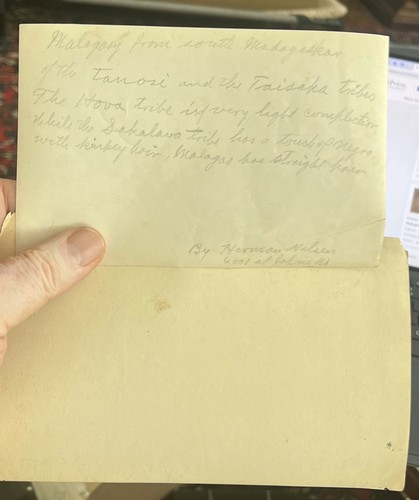 Malagasy from south Madagaskar
of the Tanosi and the Taisaka tribes
The Hova tribe is very light complection
While the Sakalava tribe has a touch of Negro,
with kinkey hair, Malagas has straight hair
By Herman Nelsen